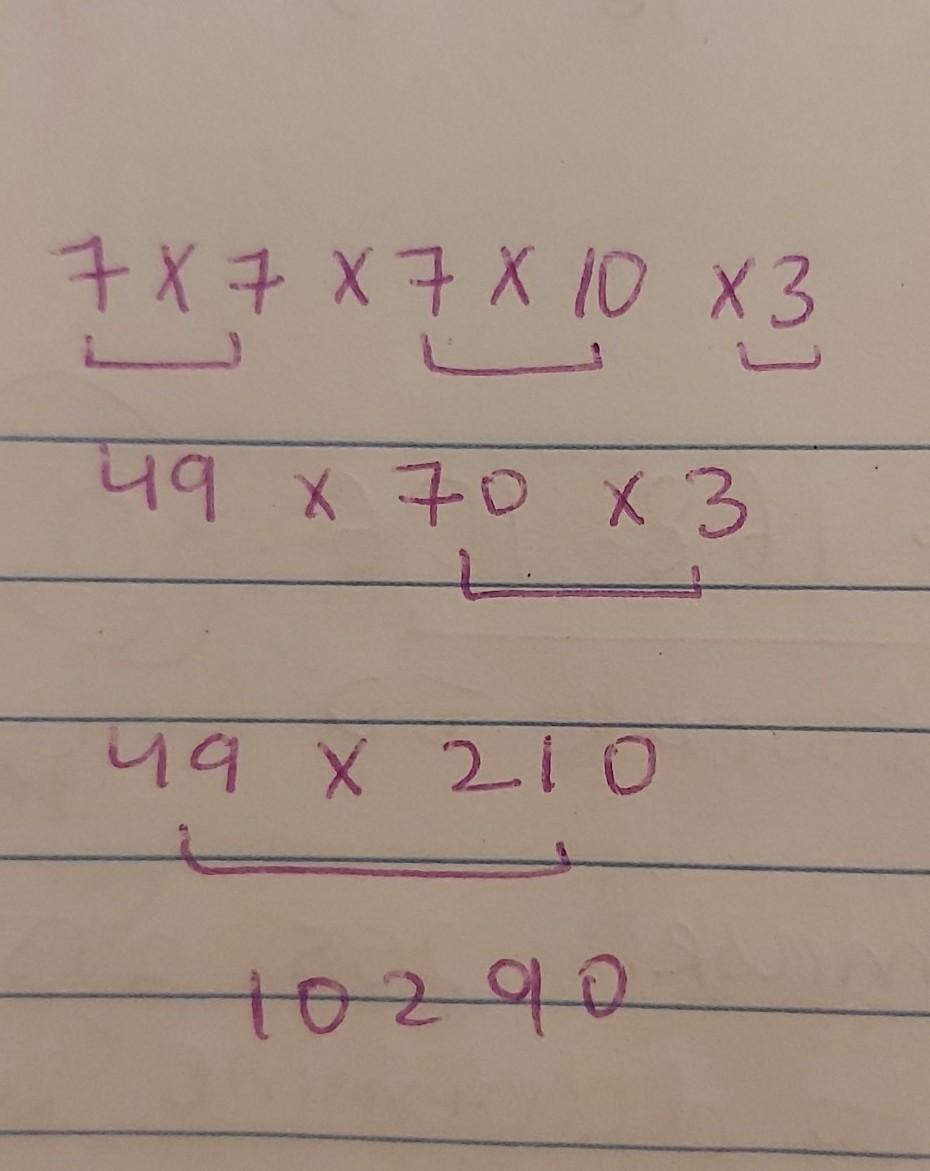 7 × 7 × 7 × 10 × 3
49 × 70 × 3
49 × 210
10290